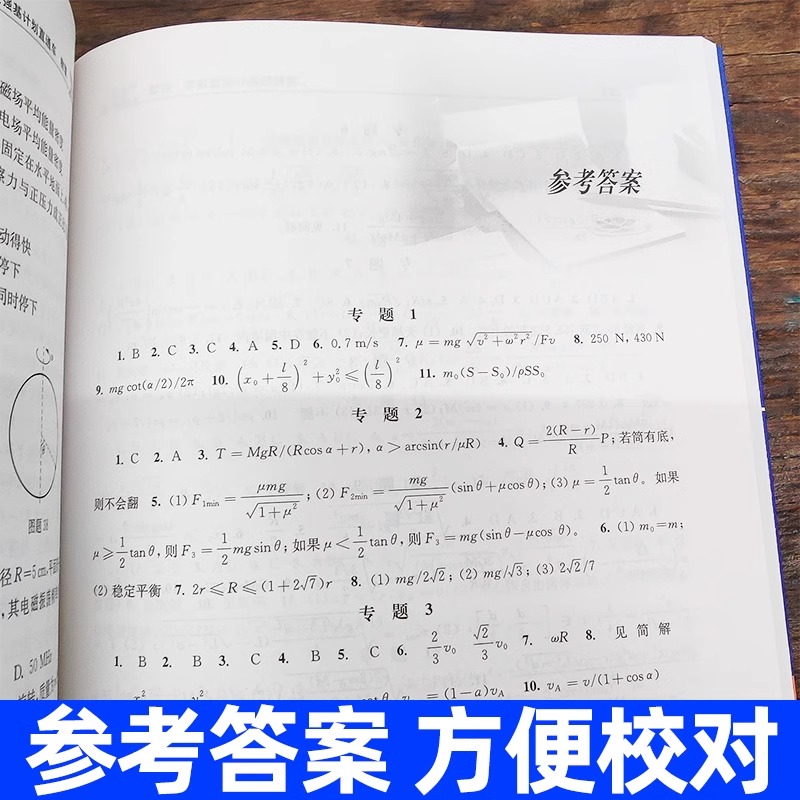 强基计划直通车
磁场平均能量密度
电场平均能量密度
固定在水平地面上
动得快
停下
同时停下
图题 38
径R=5 cm,
,其电磁振荡
D. 50 MHz
参考答案
专 题 1
1. B 2. C 3. C 4. A 5. D 6. 0.7 m/s 7. μ=mg√(v²+ω²r²)/Fv 8. 250 N, 430 N
9. mgcot(α/2)/2π 10. (x₀+l/8)²+y₀²≤(l/8)² 11. m₀(S−S₀)/ρSS₀
专 题 2
1. C 2. A 3. T=MgR/(Rcosα+r), α>arcsin(r/μR) 4. Q=2(R−r)/R P;若筒有底,
则不会翻 5. (1) F₁min=μmg/√(1+μ²);(2) F₂min=mg/√(1+μ²)(sinθ+μcosθ);(3) μ=1/2tanθ。如果
μ≥1/2tanθ,则F₃=1/2mgsinθ;如果μ<1/2tanθ,则F₃=mg(sinθ−μcosθ)。 6. (1) m₀=m;
(2) 稳定平衡 7. 2r≤R≤(1+2√7)r 8. (1) mg/2√2;(2) mg/√3;(3) 2√2/7
专 题 3
1. B 2. B 3. C 4. B 5. C 6. 2/3v₀ √2/3v₀ 7. ωR 8. 见简解
=(1−a)v_A 10. v_A=v/(1+cosα)
参考答案 方便校对